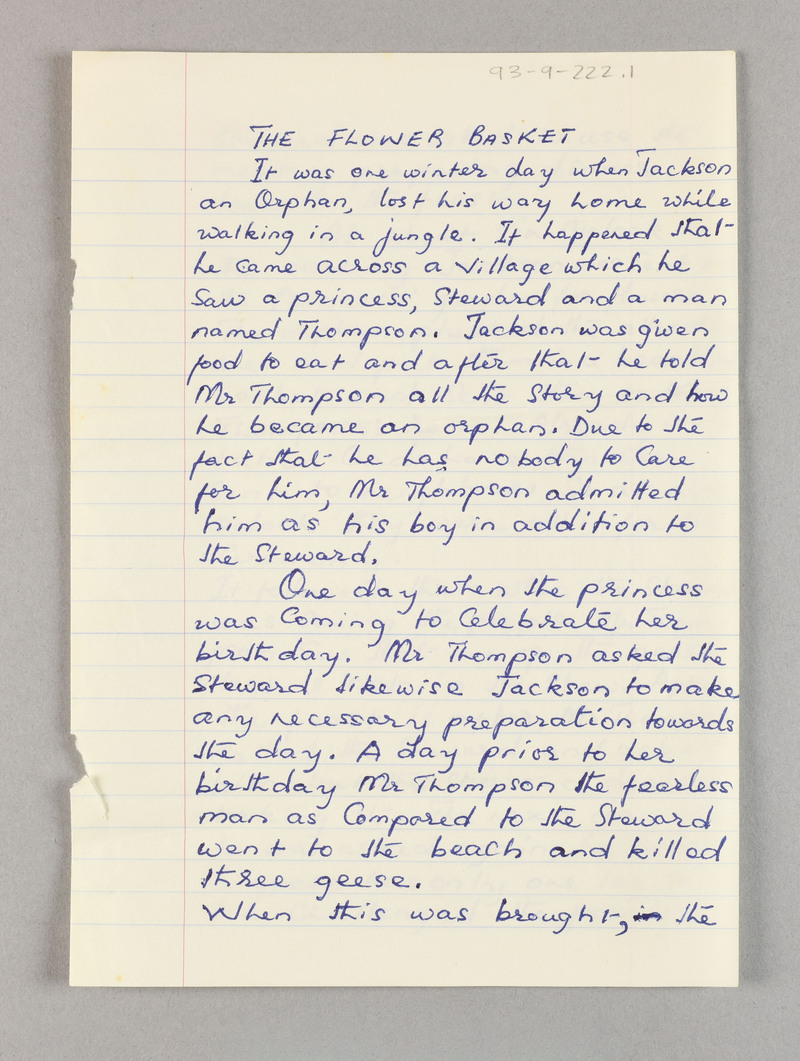 93-9-222.1
THE FLOWER BASKET
It was one winter day when Jackson
an Orphan, lost his way home while
walking in a jungle. It happened that
he came across a village which he
saw a princess, Steward and a man
named Thompson. Jackson was given
food to eat and after that he told
Mr Thompson all the story and how
he became an orphan. Due to the
fact that he has nobody to care
for him, Mr Thompson admitted
him as his boy in addition to
the Steward.
One day when the princess
was coming to celebrate her
birthday. Mr Thompson asked the
Steward likewise Jackson to make
any necessary preparation towards
the day. A day prior to her
birthday Mr Thompson the fearless
man as compared to the Steward
went to the beach and killed
three geese.
When this was brought, in the